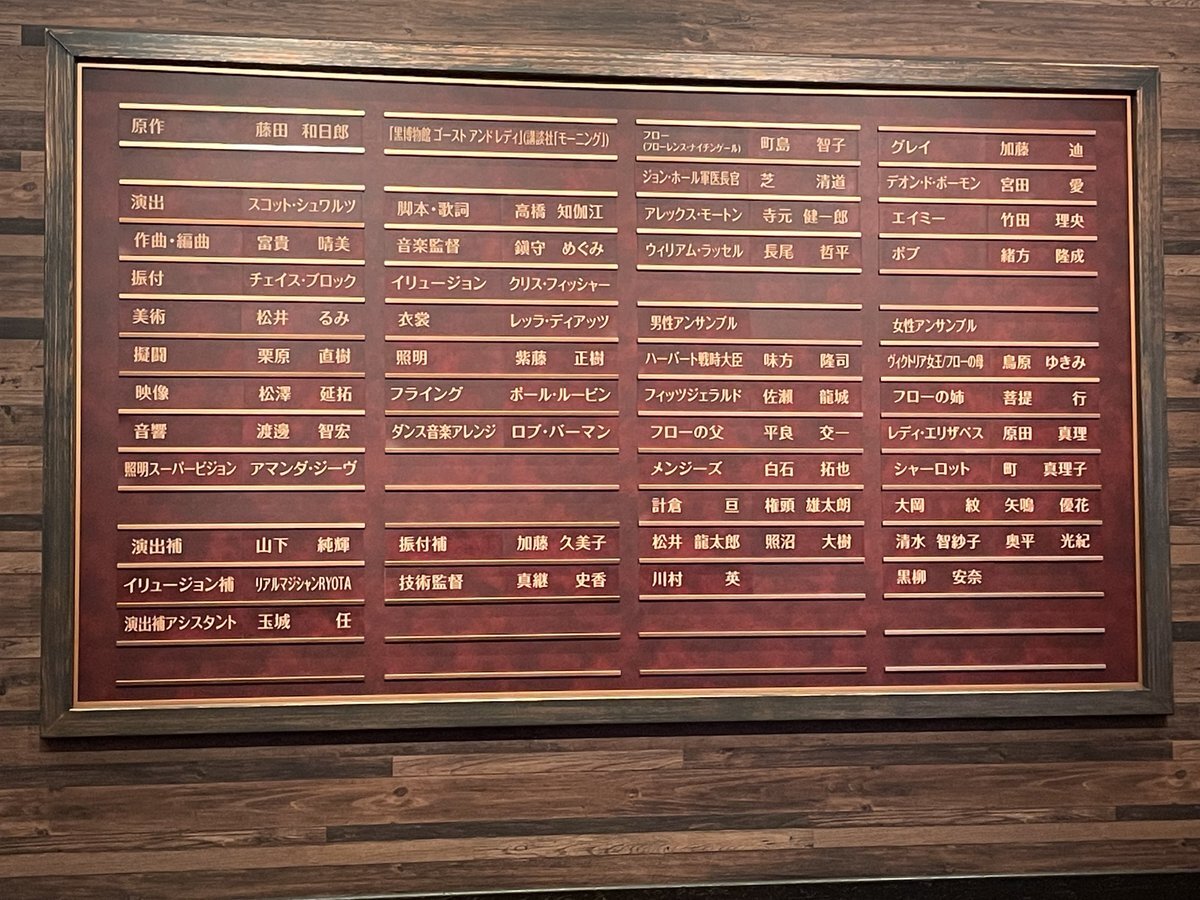 原作 藤田 和日郎
演出 スコット・シュワルツ
作曲・編曲 富貴 晴美
振付 チェイス・ブロック
美術 松井 るみ
擬闘 栗原 直樹
映像 松澤 延拓
音響 渡邉 智宏
照明スーパービジョン アマンダ・ジーヴ
演出補 山下 純輝
イリュージョン補 リアルマジシャンRYOTA
演出補アシスタント 玉城 任
「黒博物館 ゴースト アンド レディ」(講談社「モーニング」)
脚本・歌詞 高橋 知伽江
音楽監督 鎭守 めぐみ
イリュージョン クリス・フィッシャー
衣裳 レッラ・ディアッツ
照明 紫藤 正樹
フライング ポール・ルービン
ダンス音楽アレンジ ロブ・バーマン
振付補 加藤 久美子
技術監督 真継 史香
フロー
(フローレンス・ナイチンゲール) 町島 智子
ジョン・ホール軍医長官 芝 清道
アレックス・モートン 寺元 健一郎
ウィリアム・ラッセル 長尾 哲平
男性アンサンブル
ハーバート戦時大臣 味方 隆司
フィッツジェラルド 佐瀬 龍城
フローの父 平良 交一
メンジーズ 白石 拓也
計倉 亘 権頭 雄太朗
松井 龍太郎 照沼 大樹
川村 英
グレイ 加藤 迪
デオン・ド・ボーモン 宮田 愛
エイミー 竹田 理央
ボブ 緒方 隆成
女性アンサンブル
ヴィクトリア女王/フローの母 鳥原 ゆきみ
フローの姉 菩提 行
レディ・エリザベス 原田 真理
シャーロット 町 真理子
大岡 紋 矢鳴 優花
清水 智紗子 奥平 光紀
黒柳 安奈